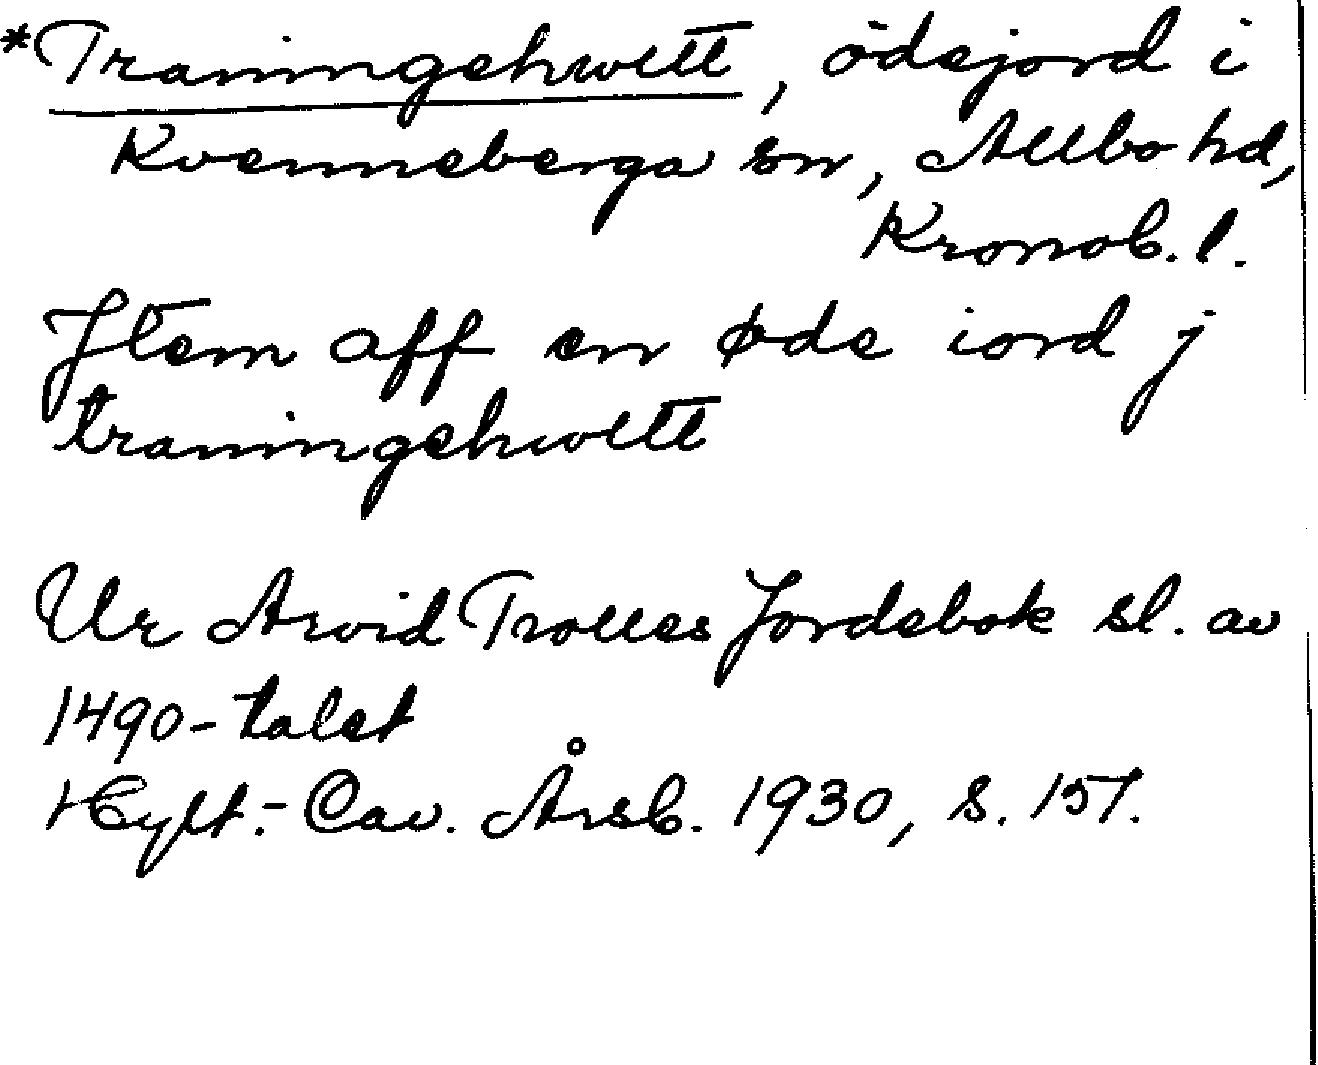 *Traningehwitt, ödejord i
Kvenneberga sn, Allbo hd,
Kronob. l.
Jtem aff en øde iord j
traningehwitt
Ur Arvid Trolles Jordebok sl. av
1490-talet
Hylt.-Cav. Årsb. 1930, s. 157.